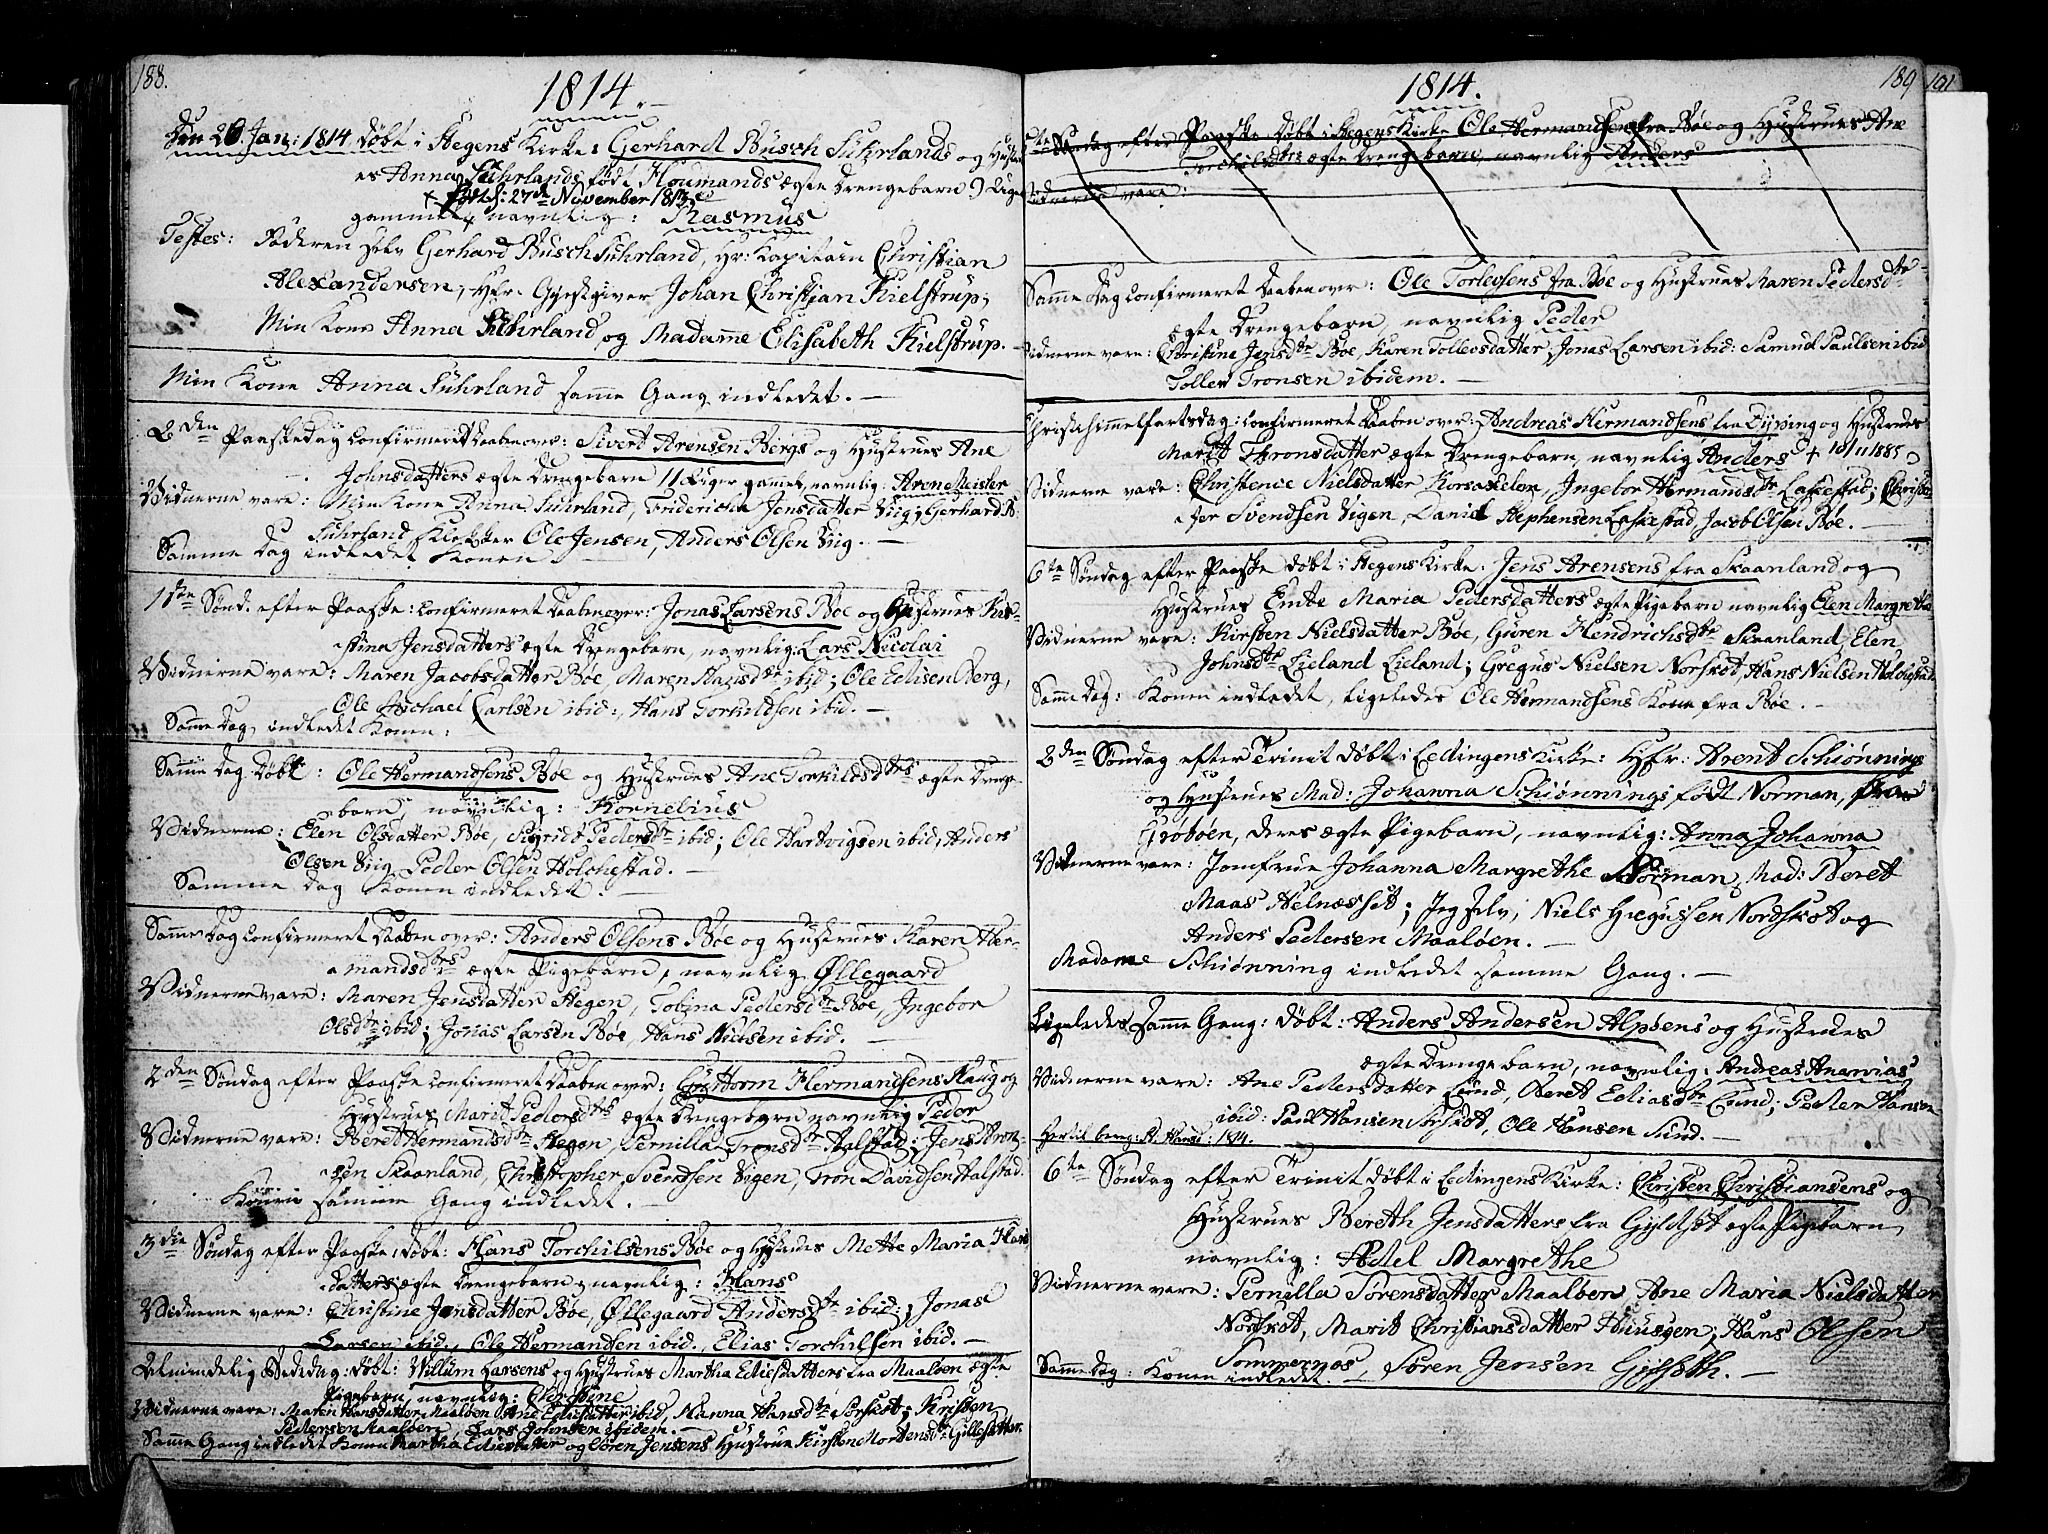 188.
1814.
Den 26 Jan: 1814 döbt i Hegens Kirke: Gerhard Busch Suhrlands og Hustru
es Anna Suhrlands födt Houmands ægte Drengebarn 9 Uger
+ föd d: 27de November 1813
gammel + navnlig: Rasmus
Testes: Faderen selv Gerhard Busch Suhrland, Hr: Kapitain Christian
Alexandersen, Hfr: Gjestgiver Johan Christian Kielstrup;
Min Kone Anna Suhrland og Madame Elisabeth Kielstrup.
Min Kone Anna Suhrland samme Gang indledet.
2den Paaskedag confirmeret Daaben over: Sivert Arensen Bergs og Hustrues Ane
Johnsdatters ægte Drengebarn 11 Uger gamel, navnlig: Aron Meisler
Vidnerne vare: Min Kone Anna Suhrland, Fridericha Jensdatter Viig; Gerhard B:
Suhrland, Ole Jensen, Anders Olsen Viig.
Samme Dag indledet Konen.
1ste Sönd. efter Paaske: confirmeret Daaben over: Jonas Larsens Böe og Hustrues Kir-
stina Jensdatters ægte Drengebarn, navnlig: Lars Nicolai
Vidnerne vare: Maren Jacobsdatter Böe, Maren Hansdtr ibid; Ole Ediesen Berg,
Ole Michael Carlsen ibid:, Hans Torkildsen ibid.
Samme Dag indledet Konen:
Samme Dag Döbt: Ole Hermandsens Böe og Hustrues Ane Torkildsdtrs ægte Drenge-
barn navnlig: Kornelius
Vidnerne: Elen Olsdatter Böe, Sigrid Pedersdtr ibid; Ole Hartvigsen ibid, Anders
Olsen Viig, Peder Olsen Holchestad.
Samme Dag Konen indledet.
Samme Dag confirmeret Daaben over: Anders Olsens Böe og Hustrues Karen Her-
mandsdtrs ægte Pigebarn, navnlig Øllegaard
Vidnerne vare: Maren Jensdatter Hegen, Tobina Pedersdtr Böe, Ingebor
Olsdtr ibid; Jonas Larsen Böe, Hans Nielsen ibid.
2den Söndag efter Paaske confirmeret Daaben over: Guttorm Hermandsens Haug og
Hustrues Marit Pedersdtrs ægte Drengebarn navnlig Peder
Vidnerne vare: Beret Hermandsdtr Hegen, Pernilla Tronsdtr Halstad; Jens Aron-
sen Skaanland, Christopher Svendsen Vigen, Tron Davidsen Halstad.
Konen samme Gang indledet.
3die Söndag efter Paaske, döbt: Hans Torchilsens Böe og Hustrues Mette Maria Hans
datters ægte Drengebarn, navnlig: Hans
Vidnerne vare: Christine Jensdatter Böe, Øllegaard Andersdtr ibid:, Jonas
Larsen ibid., Ole Hermandsen ibid., Elias Torchilsen ibid.
Almindelig Bededag: döbt: Willum Larsens og Hustrues Martha Ediesdatters fra Maalöen ægte
Pigebarn, navnlig: Christine
Vidnerne vare: Maren Hansdatter Maalöen, Ane Ediesdatter ibid, Hanna Hansdtr Sorskot; Kristen
Pedersen Maalöen, Lars Johnsen ibidem.
Samme Gang indledet Konen Martha Ediesdatter og Sören Jensens Hustrue Kirsten Mortensdtr Gilleskotter.
1814.
189
191
5te Söndag efter Paaske Döbt i Hegens Kirke Ole Hermandsens fra Böe og Hustrues Ane
Torchilsdtrs ægte Drengebarn, navnlig Anders
Vidnerne vare:
Samme Dag confirmeret Daaben over: Ole Torlevsens fra Böe og Hustrues Maren Pedersdtrs
ægte Drengebarn, navnlig Peder
Vidnerne vare: Christine Jensdtr Böe, Karen Tollevsdatter, Jonas Larsen ibid: Samuel Paulsen ibid
Tollev Tronsen ibidem.
Christi himmelfartsdag: confirmeret Daaben over: Andreas Hermandsens fra Dyping og Hustrues
Marit Thronsdatter ægte Drengebarn, navnlig Anders + 10/11 1885
Vidnerne vare: Christence Nielsdatter Korsaxelen, Ingebor Hermandsdtr Laxestad; Christo-
fer Svendsen Vigen, Daniel Stephensen Laxestad, Jacob Olsen Böe.
6te Söndag efter Paaske döbt i Hegens Kirke: Jens Arensens fra Skaanland og
Hustrues Embe Maria Pedersdatters ægte Pigebarn navnlig Elen Margretha
Vidnerne vare: Kirsten Nielsdatter Böe, Guren Hendrichsdtr Skaanland, Elen
Johnsdtr Lieland Lieland; Gregus Nielsen Norskot, Hans Nielsen Holchestad
Samme Dag: Konen indledet, Ligeledes Ole Hermandsens Kone fra Böe.
2den Söndag efter Trinit döbt i Ledingens Kirke: Hfr: Arent Schiönnings
og Hustrues Mad: Johanna Schiönnings födt Norman, fra
Gröböen, deres ægte Pigebarn, navnlig: Anna Johanna
Vidnerne vare: Jomfrue Johanna Margrethe Norman, Mad: Beret
Maas Helnesset; Jeg selv, Niels Gregussen Nordskot og
Anders Pedersen Maalöen.
Madame Schiönning indledet samme Gang.
Ligeledes samme Gang: döbt: Anders Andersen Alpöens og Hustrues
ægte Drengebarn, navnlig: Andreas Ananias
Vidnerne vare: Ane Pedersdatter Lund, Beret Ediasdtr Lund; Peder Hansen
ibid: Paul Hansen Sorskot, Ole Hansen Sund.
Hertil bereg: 1814.
6te Söndag efter Trinit döbt i Ledingens Kirke: Christen Christiansens og
Hustrues Bereth Jensdatters fra Gyldskot ægte Pigebarn
navnlig: Adel Margrethe
Vidnerne vare: Pernilla Sörensdatter Maalöen, Ane Maria Nielsdatter
Norskot, Marit Christiansdatter Huusgen; Hans Olsen
Sommernes, Sören Jensen Gilskoth.
Samme Dag: Konen indledet.